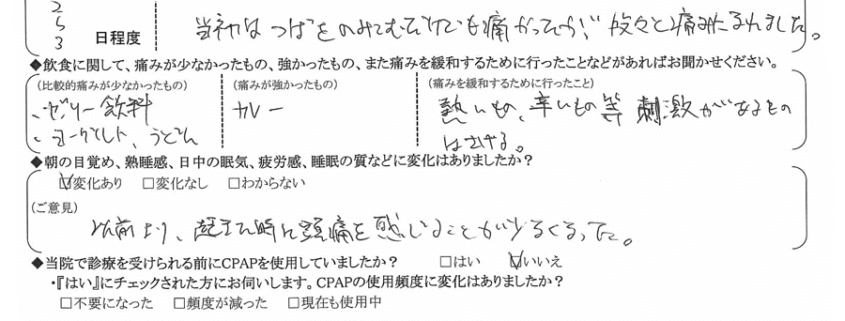 2
5
3 日程度
当初はつばをのみこむだけでも痛かったが、段々と痛みはとれました。
◆飲食に関して、痛みが少なかったもの、強かったもの、また痛みを緩和するために行ったことなどがあればお聞かせください。
(比較的痛みが少なかったもの) (痛みが強かったもの) (痛みを緩和するために行ったこと)
・ゼリー飲料 カレー 熱いもの、辛いもの等 刺激があるもの
・ヨーグルト、うどん はさける。
◆朝の目覚め、熟睡感、日中の眠気、疲労感、睡眠の質などに変化はありましたか?
☑変化あり □変化なし □わからない
(ご意見)
以前より、起きた時に頭痛を感じることが少なくなった。
◆当院で診療を受けられる前にCPAPを使用していましたか? □はい ☑いいえ
・『はい』にチェックされた方にお伺いします。CPAPの使用頻度に変化はありましたか?
□不要になった □頻度が減った □現在も使用中